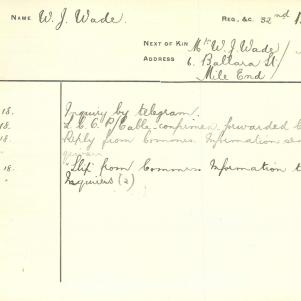 NAME W. J. Wade. REG. &C. 32nd
NEXT OF KIN Mr W. J. Wade
ADDRESS 6. Ballara St
Mile End
18. Inquiry by telegram.
18. Cable forwarded
18. Reply from Commrs. Information
18. "Slip from Commrs Information
Inquirers (2)